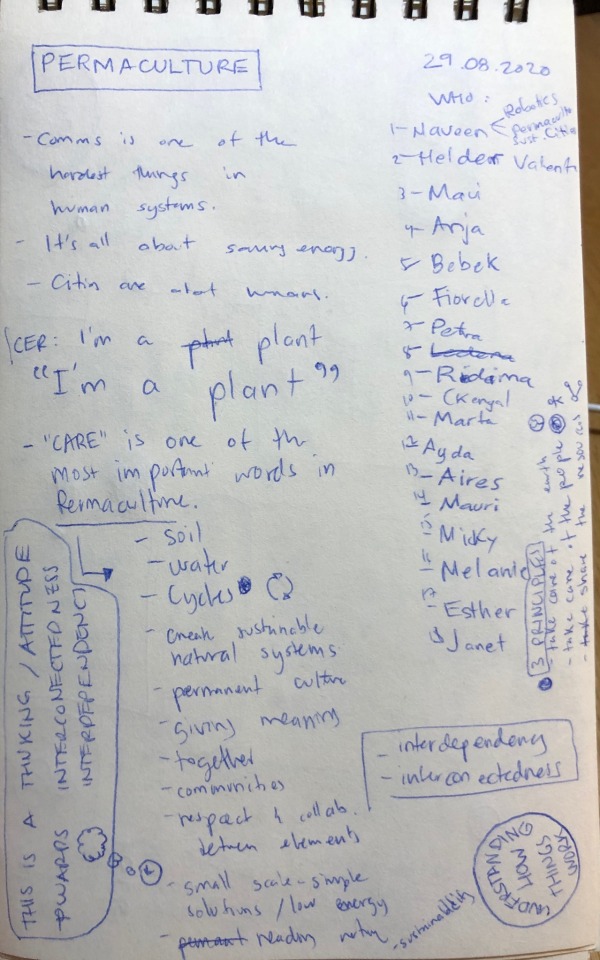 PERMACULTURE
29.08.2020
WHO:
- Comms is one of the
hardest things in
human systems.
- It's all about saving energy.
- are
ICER: I'm a plant plant
"I'm a plant"
- "CARE" is one of the
most important words in
Permaculture.
- soil
- water
- Cycles
- sustainable
natural systems
- permanent culture
- giving meaning
- together
- communities
- respect & collab.
between elements
- small scale-simple
solutions / low energy
- reading
- sustainability
1- Naveen
Robotics
permacult
Sust Citie
2- Helder Valenti
3- Maui
4- Anja
5- Bebek
6- Fiorella
7- Petra
8-
9- Ridima
10-
11- Marta
12 Ayda
13 - Aires
14 - Mauri
15 - Micky
16 - Melanie
17 - Esther
18 Janet
3 PRINCIPLES
- take care of the earth
- take care of the people
- take share the resources
- interdependency
- interconectedness
THIS IS A THINKING / ATTITUDE
TOWARDS INTERCONECTEDNESS
INTERDEPENDENCY
UNDERSTANDING
HOW
THINGS
WORK